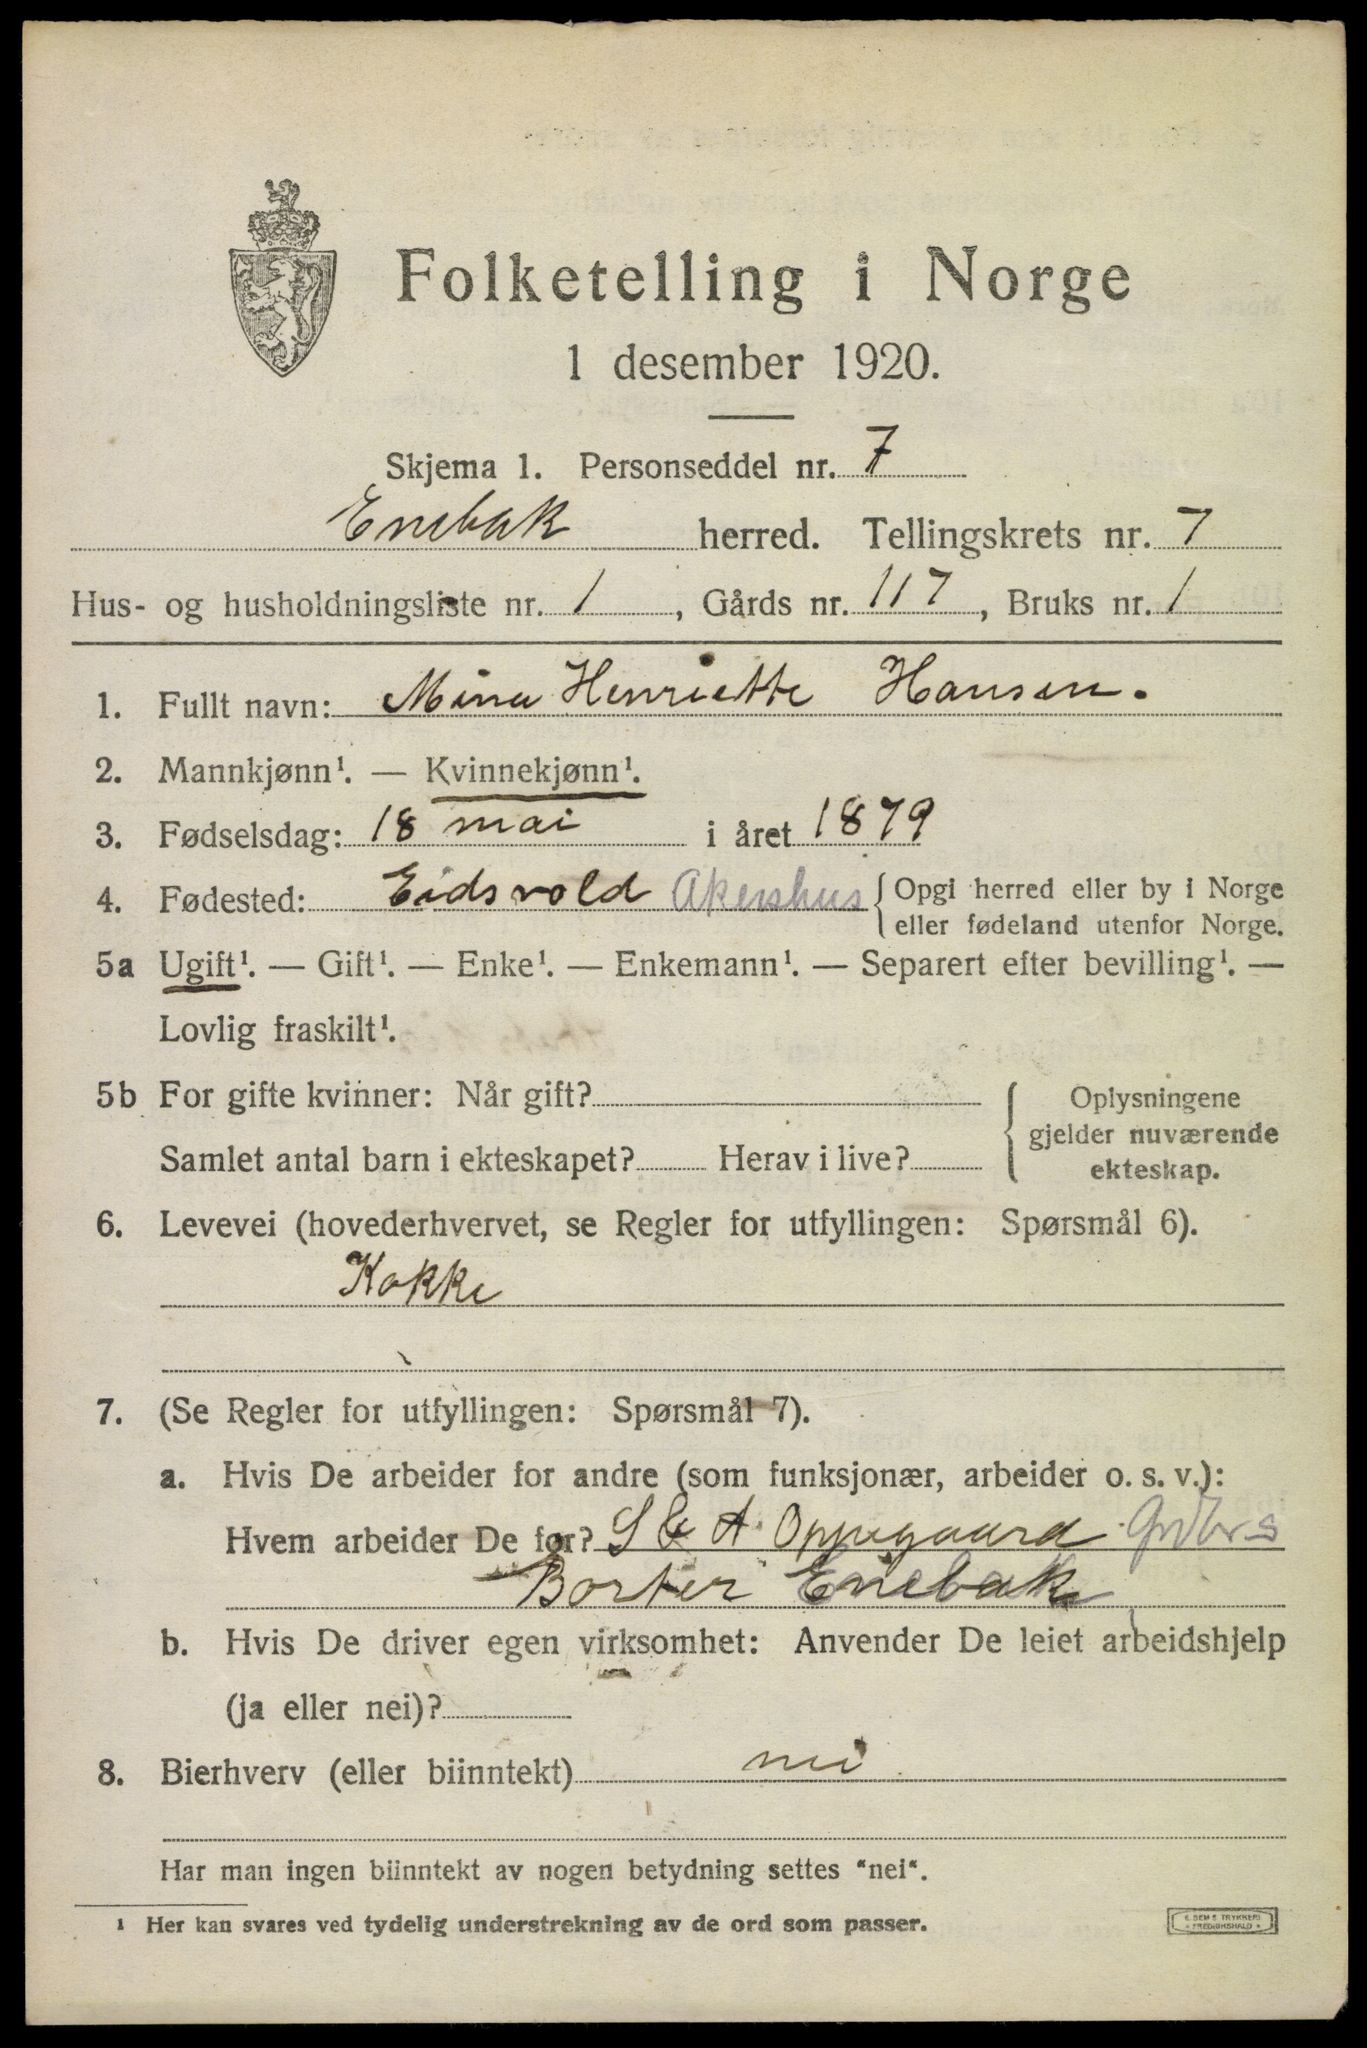 Folketelling i Norge
1 desember 1920.
Skjema 1. Personseddel nr. 7
Enebak herred. Tellingskrets nr. 7
Hus- og husholdningsliste nr. 1, Gårds nr. 117, Bruks nr. 1
1. Fullt navn: Mina Henriette Hansen.
2. Mannkjønn¹. — Kvinnekjønn¹.
3. Fødselsdag: 18 mai i året 1879
4. Fødested: Eidsvold Akershus { Opgi herred eller by i Norge
eller fødeland utenfor Norge.
5a Ugift¹. — Gift¹. — Enke¹. — Enkemann¹. — Separert efter bevilling¹. —
Lovlig fraskilt¹.
5b For gifte kvinner: Når gift? { Oplysningene
gjelder nuværende
Samlet antal barn i ekteskapet? Herav i live?
ekteskap.
6. Levevei (hovederhvervet, se Regler for utfyllingen: Spørsmål 6).
Kokke
7. (Se Regler for utfyllingen: Spørsmål 7).
a. Hvis De arbeider for andre (som funksjonær, arbeider o. s. v.):
Hvem arbeider De for? S & A Oppegaard
Børter Enebak
b. Hvis De driver egen virksomhet: Anvender De leiet arbeidshjelp
(ja eller nei)?
8. Bierhverv (eller biinntekt) nei
Har man ingen biinntekt av nogen betydning settes "nei".
¹ Her kan svares ved tydelig understrekning av de ord som passer.
E. SEM'S TRYKKERI
FREDRIKSHALD